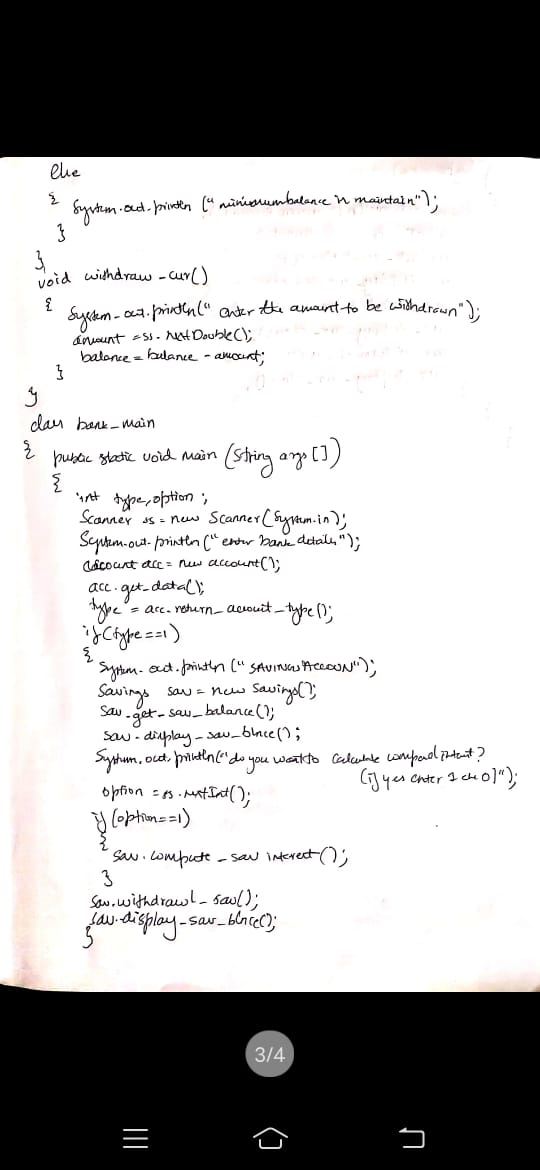 else
{ System.out.println (" minimum balance is maintain");
}
}
void withdraw-cur()
{ System.out.println(" enter the amount to be withdrawn");
amount = ss. NextDouble();
balance = balance - amount;
}
}
class bank_main
{ public static void main (String args [])
{
int type, option ;
Scanner ss = new Scanner(System.in);
System.out.println ("enter bank details");
account acc = new account();
acc.get_data();
type = acc.return_account_type();
if(type==1)
{
System.out.println (" SAVINGS ACCOUN");
Savings sav = new Savings();
sav.get_sav_balance();
sav.display_sav_blnce();
System.out.println("do you want to calculate compound intrest?
(if yes enter 1 else 0]");
option = ss.nextInt();
if (option==1)
{
sav.compute_sav interest();
}
sav.withdrawl_sav();
sav.display_sav_blnce();
}
3/4